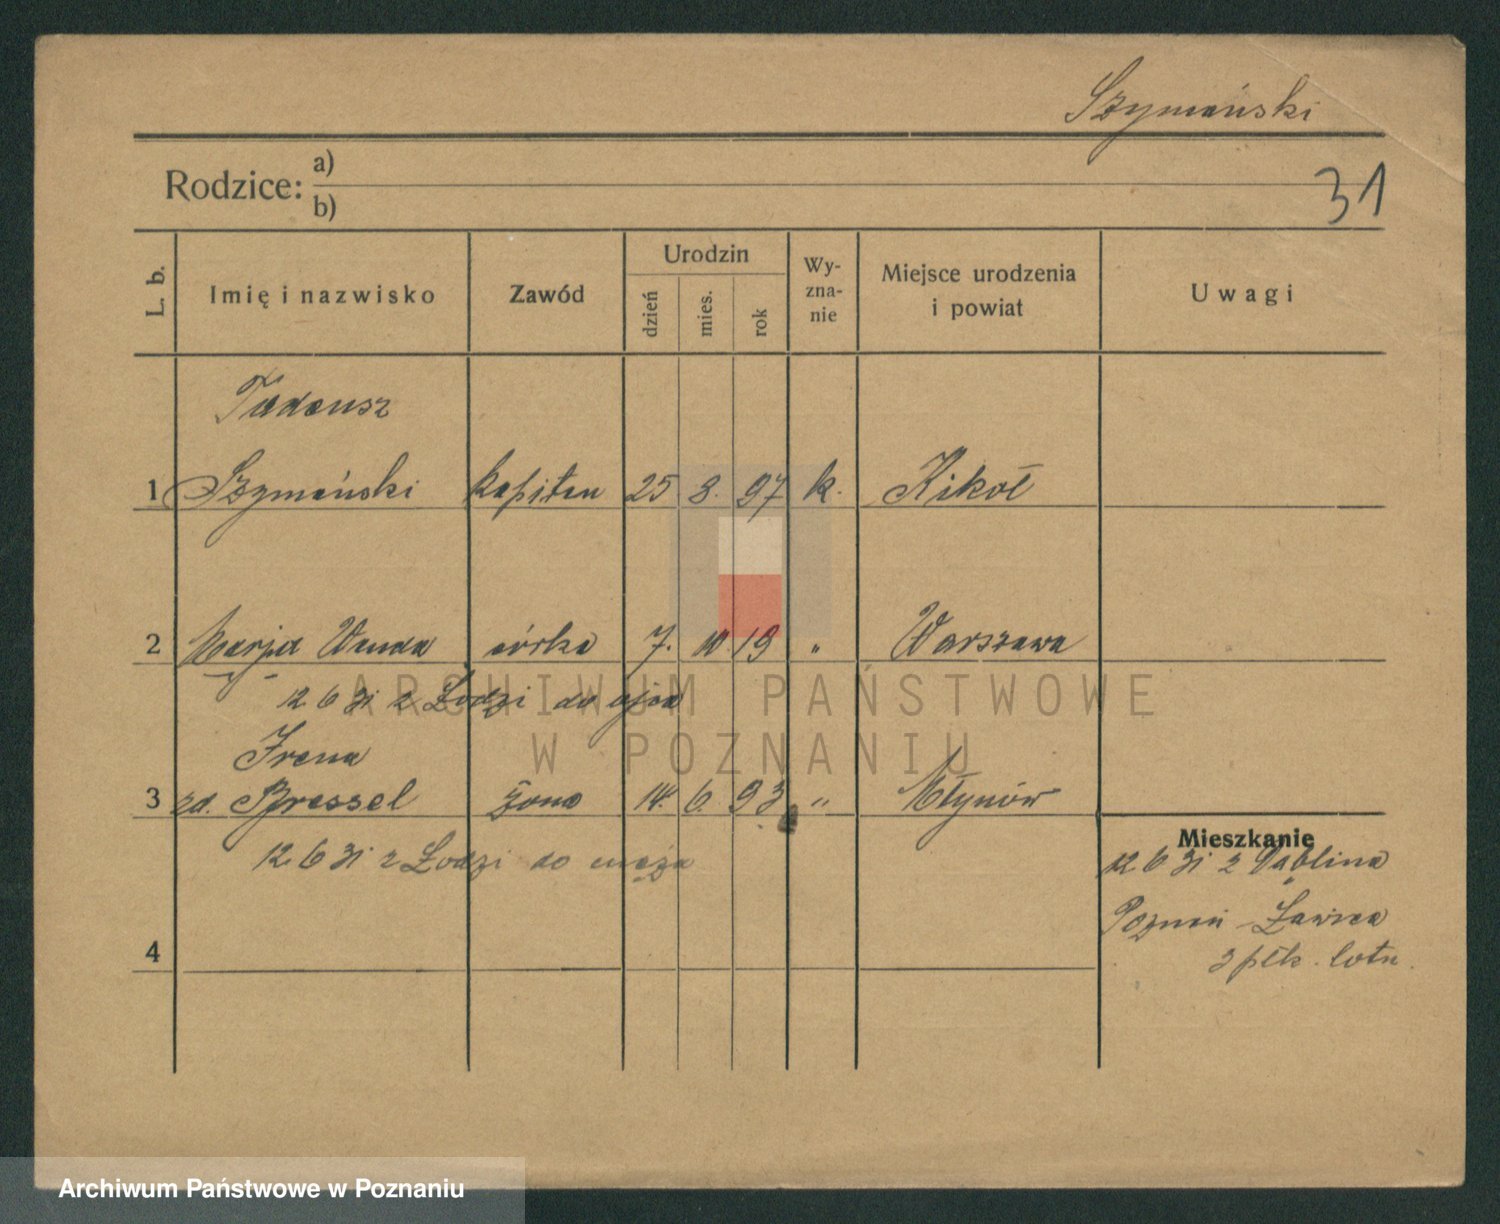 Szymański
Rodzice: a)
b)
31
L. b.
Imię i nazwisko
Zawód
Urodzin
dzień
mies.
rok
Wy-
zna-
nie
Miejsce urodzenia
i powiat
Uwagi
Tadeusz
1 Szymański kapitan 25 8. 97 k. Kikół
2 Marja Wanda córka 7. 10. 19 " Warszawa
12 6 31 z Łodzi do ojca
Irena
3 zd. Bressel żona 14. 6. 93 " Młynów
12. 6 31 z Łodzi do męża
Mieszkanie
12 6 31 z Dęblina
Poznań - Ławica
3 płk. lotn.
4
ARCHIWUM PAŃSTWOWE
W POZNANIU
Archiwum Państwowe w Poznaniu